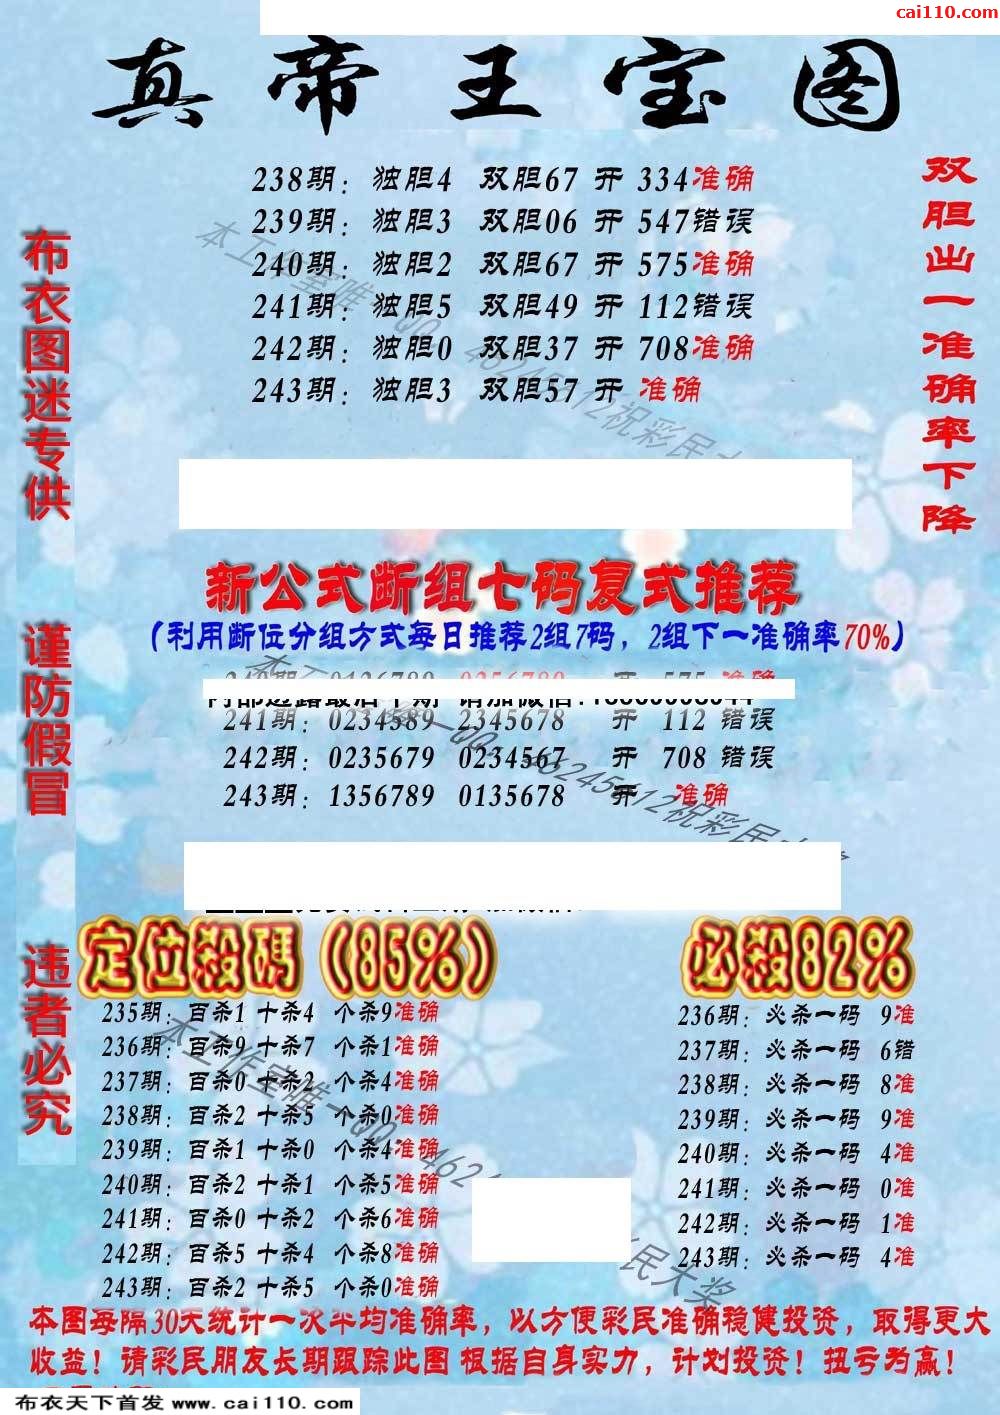 cai110.com
真帝王宝图
238期：独胆4 双胆67 开 334准确
239期：独胆3 双胆06 开 547错误
240期：独胆2 双胆67 开 575准确
241期：独胆5 双胆49 开 112错误
242期：独胆0 双胆37 开 708准确
243期：独胆3 双胆57 开 准确
双胆出一准确率下降
布衣图迷专供
谨防假冒
违者必究
新公式断组七码复式推荐
（利用断位分组方式每日推荐2组7码，2组下一准确率70%）
240期：0126789 0256789 开 575 准确
241期：0234589 2345678 开 112 错误
242期：0235679 0234567 开 708 错误
243期：1356789 0135678 开 准确
定位殺碼（85%）
235期：百杀1 十杀4 个杀9准确
236期：百杀9 十杀7 个杀1准确
237期：百杀0 十杀2 个杀4准确
238期：百杀2 十杀5 个杀0准确
239期：百杀1 十杀0 个杀4准确
240期：百杀2 十杀1 个杀5准确
241期：百杀0 十杀2 个杀6准确
242期：百杀5 十杀4 个杀8准确
243期：百杀2 十杀5 个杀0准确
必殺82%
236期：必杀一码 9准
237期：必杀一码 6错
238期：必杀一码 8准
239期：必杀一码 9准
240期：必杀一码 4准
241期：必杀一码 0准
242期：必杀一码 1准
243期：必杀一码 4准
本图每隔30天统计一次平均准确率，以方便彩民准确稳健投资，取得更大
收益！请彩民朋友长期跟踪此图 根据自身实力，计划投资！扭亏为赢！
布衣天下首发 www.cai110.com